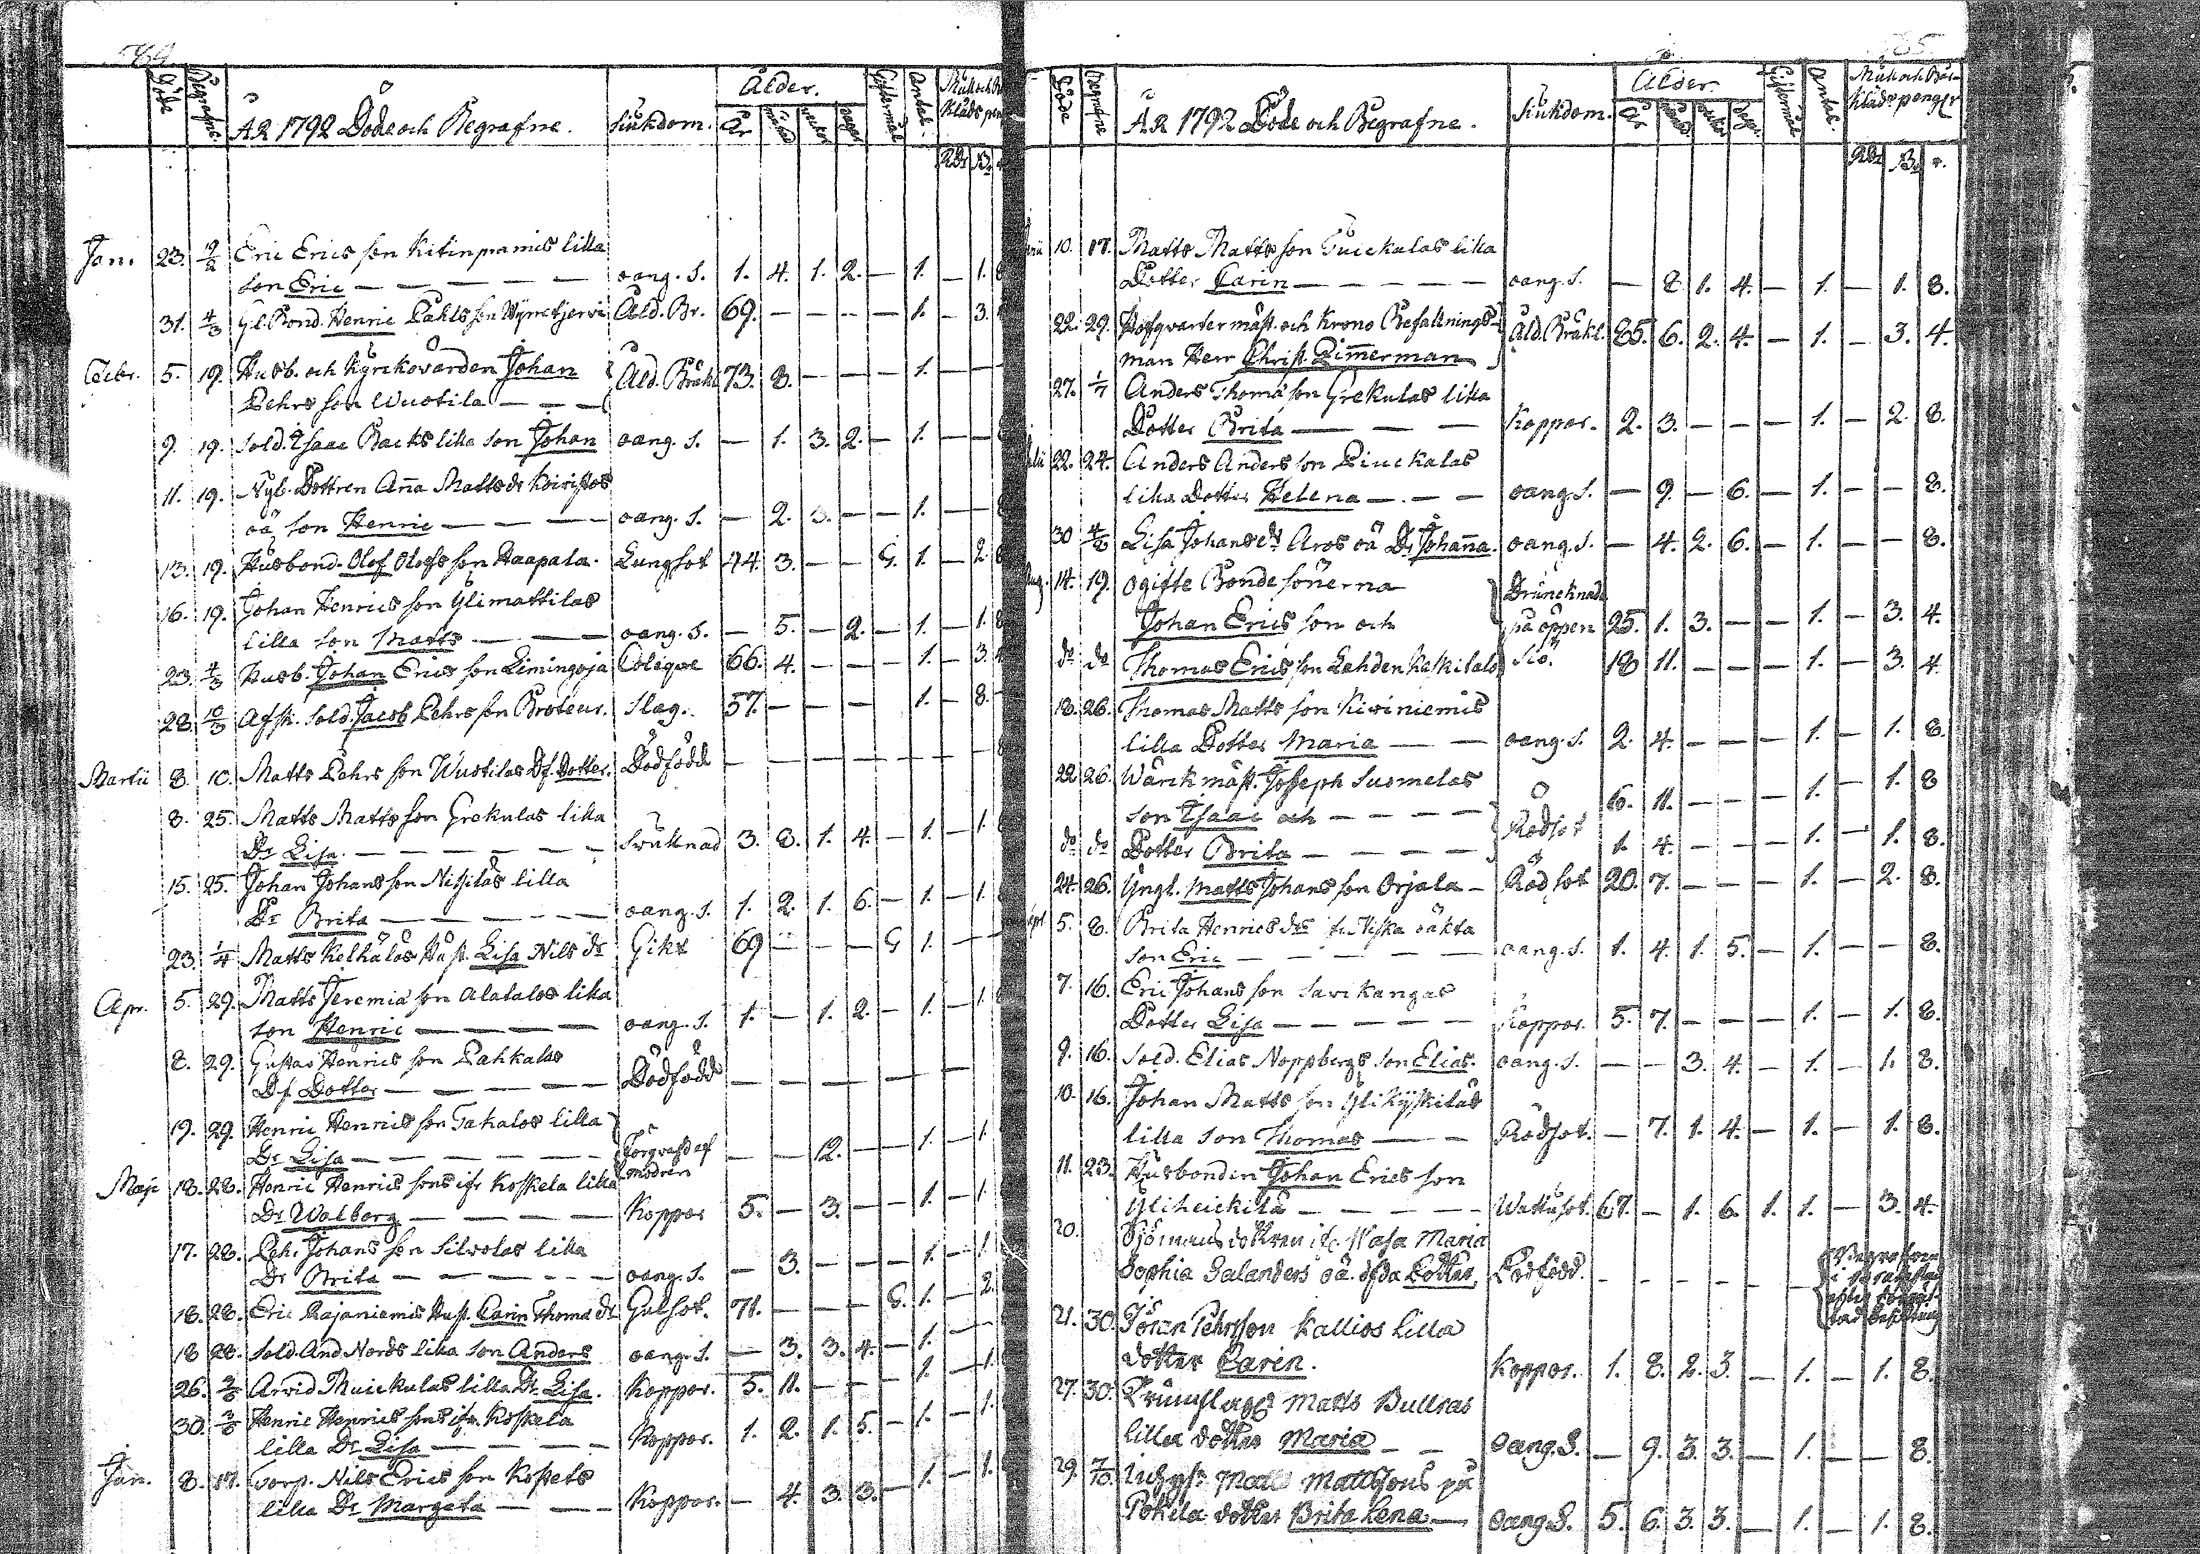 584.
Döde
Begrafne.
ÅR 1792 Döde och Begrafne.
Siukdom.
Ålder.
År
månad
veckor
dagar
Giftermål
Antal.
Rdr ß
Jan. 23. 19/2 Eric Erics son Kitinpranis lilla
son Eric — — — — — oang. S. 1. 4. 1. 2. — 1. — 1.
31. 4/3 Gl. Bond. Henric Påhls son Wyrretjervi Åld. Br. 69. — — — — 1. — 3.
Febr. 5. 19. Husb. och Kyrckovärden Johan
Pehrs son Wuotila — — — Åld. Bräkl. 73. 8. — — — 1. — —
9. 19. Sold. Isaac Backs lilla son Johan oang. S. — 1. 3. 2. — 1. — —
11. 19. Nyb. Dottren Anna Matts dr Koiristos
oä son Henric — — — — oang. S. — 2. 3. — — 1. — —
13. 19. Husbond. Olof Olofs son Haapala. Lungsot 44. 3. — — G. 1. — 2.
16. 19. Johan Henrics son Ylimattilas
lilla son Matts — — — oang. S. — 5. — 2. — 1. — 1.
23. 4/3 Husb. Johan Erics son Limingoja Colique 66. 4. — — — 1. — 3.
28. 10/3 Afsk. Sold. Jacob Pehrs son Broteur. Slag. 57. — — — 1. — 8.
Martii 8. 10. Matts Pehrs son Wuotilas Df. Dotter. Dödfödd — — — — — —
8. 25. Matts Matts son Grekulas lilla
Dr Lisa. — — — — — Svullnad 3. 8. 1. 4. — 1. — 1.
15. 25. Johan Johans son Nissilas lilla
Dr Brita — — — — — oang. S. 1. 2. 1. 6. — 1. — 1.
23. 1/4 Matts Kelhälös Hust. Lisa Nils dr Gikt 69 — — — G 1. — —
Apr. 5. 29. Matts Jeremiæ son Alatalos lilla
son Henric — — — — oang. S. 1. — 1. 2. — 1. — 1.
8. 29. Gustav Henrics son Pahkalas
Df. Dotter — — — — — Dödfödd — — — — — —
19. 29. Henric Henrics son Takalos lilla
Dr Lisa — — — — — Förqväfd af modren — — 12. — — 1. — 1.
Maji 13. 28. Henric Henrics sons ifr. Koskela lilla
Dr Walborg — — — — Koppor 5. — 3. — — 1. — 1.
17. 28. Pehr Johans son Silvolas lilla
Dr Brita — — — — — oang. S. — 3. — — — 1. — 1.
18. 28. Eric Rajaniemis Hust. Carin Thomæ dr Gulsot. 71. — — — G. 1. — 2.
18 28. Sold. And. Nords lilla son Anders oang. S. — 3. 3. 4. — 1. —
26. 3/6 Arvid Thuickulas lilla Dr. Lisa. Koppor. 5. 11. — — — 1. — 1.
30. 3/6 Henric Henrics sons ifr. Koskela
lilla Dr Lisa — — — — Koppor. 1. 2. 1. 5. — 1. — 1.
Jun. 8. 17. Corp. Nils Erics son
lilla Dr. Margeta — — — Koppor. — 4. 3. 3. — 1. — 1.
585.
Döde
Begrafne
ÅR 1792 Döde och Begrafne.
Siukdom.
Ålder.
År
veckor
Giftermål
Antal.
Mull och Bår-
Kläds peng(r
Rdr ß r.
10. 17. Matts Matts son Tuickalas lilla
Dotter Carin — — — — — oang. S. — 8 1. 4. — 1. — 1. 8.
22. 29. Hofqvartermäst. och Krono Befallnings-
man Herr Christ. Zimmerman Åld. Bräkl. 85. 6. 2. 4. — 1. — 3. 4.
27. 1/7 Anders Thomæ son Grekulas lilla
Dotter Brita — — — Koppor. 2. 3. — — — 1. — 2. 8.
22. 24. Anders Anders son Piuckalas
lilla Dotter Helena — — — oang. S. — 9. — 6. — 1. — — 8.
30 4/8 Lisa Johans dr Aros oä Dr Johanna. oang. S. — 4. 2. 6. — 1. — — 8.
Aug. 14. 19. ogifte Bonde sönerna
Johan Erics son och Druncknade på öppen 25. 1. 3. — — 1. — 3. 4.
do do Thomas Erics son Lahden Kalkilalo Siö. 18 11. — — — 1. — 3. 4.
18. 26. Thomas Matts son Kiviniemis
lilla Dotter Maria — — oang. S. 2. 4. — — — 1. — 1. 8.
22 26. Wärckmäst. Joseph Suomelas
son Isaac och — — — — Rödsot 6. 11. — — — 1. — 1. 8
do do Dotter Brita — — — — 1. 4. — — — 1. — 1. 8.
24. 26. Yngl. Matts Johans son Orjala — Rödsot 20. 7. — — — 1. — 2. 8.
5. 8. Brita Henrics dr ifr. Niska oäkta
son Eric — — — — — oang. S. 1. 4. 1. 5. — 1. — — 8.
7. 16. Eric Johans son Savikangas
Dotter Lisa — — — — — Koppor. 5. 7. — — — 1. — 1. 8.
9. 16. Sold. Elias Noppbergs son Elias. oang. S. — — 3. 4. — 1. — 1. 8.
10. 16. Johan Matts son Ylikyskiläs
lilla son Thomas — — Rödsot. — 7. 1. 4. — 1. — 1. 8.
11. 23. Husbonden Johan Erics son
Yliheickilä — — — — — Wattusot. 67. — 1. 6. 1. 1. — 3. 4.
20. Sjömans ifr. Wasa Maria
Sophia Salanders oä. dfda Dotter. Dödfödd. — — — — —
21. 30. Jöran Pehrsson Kallios lilla
dotter Carin. Koppor. 1. 8. 2. 3. — 1. — 1. 8.
27. 30. Trumslag. Matts Bullras
lilla dotter Maria — — oang. S. — 9. 3. 3. — 1. — 8.
29. 7/10. Matts Mattssons på
Pokela dotter Brita Lena — oang. S. 5. 6. 3. 3. — 1. — 1. 8.